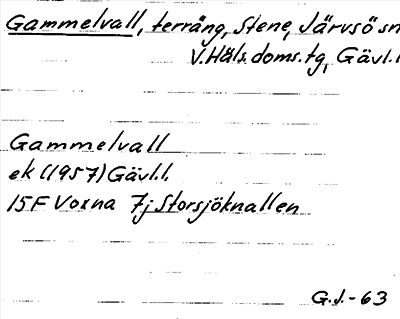 Gammelvall, terräng, Stene, Järvsö sn
V. Häls. doms. tg, Gävl. l
Gammelvall
ek (1957) Gävl. l.
15F Voxna 7j Storsjöknallen
G.J.-63